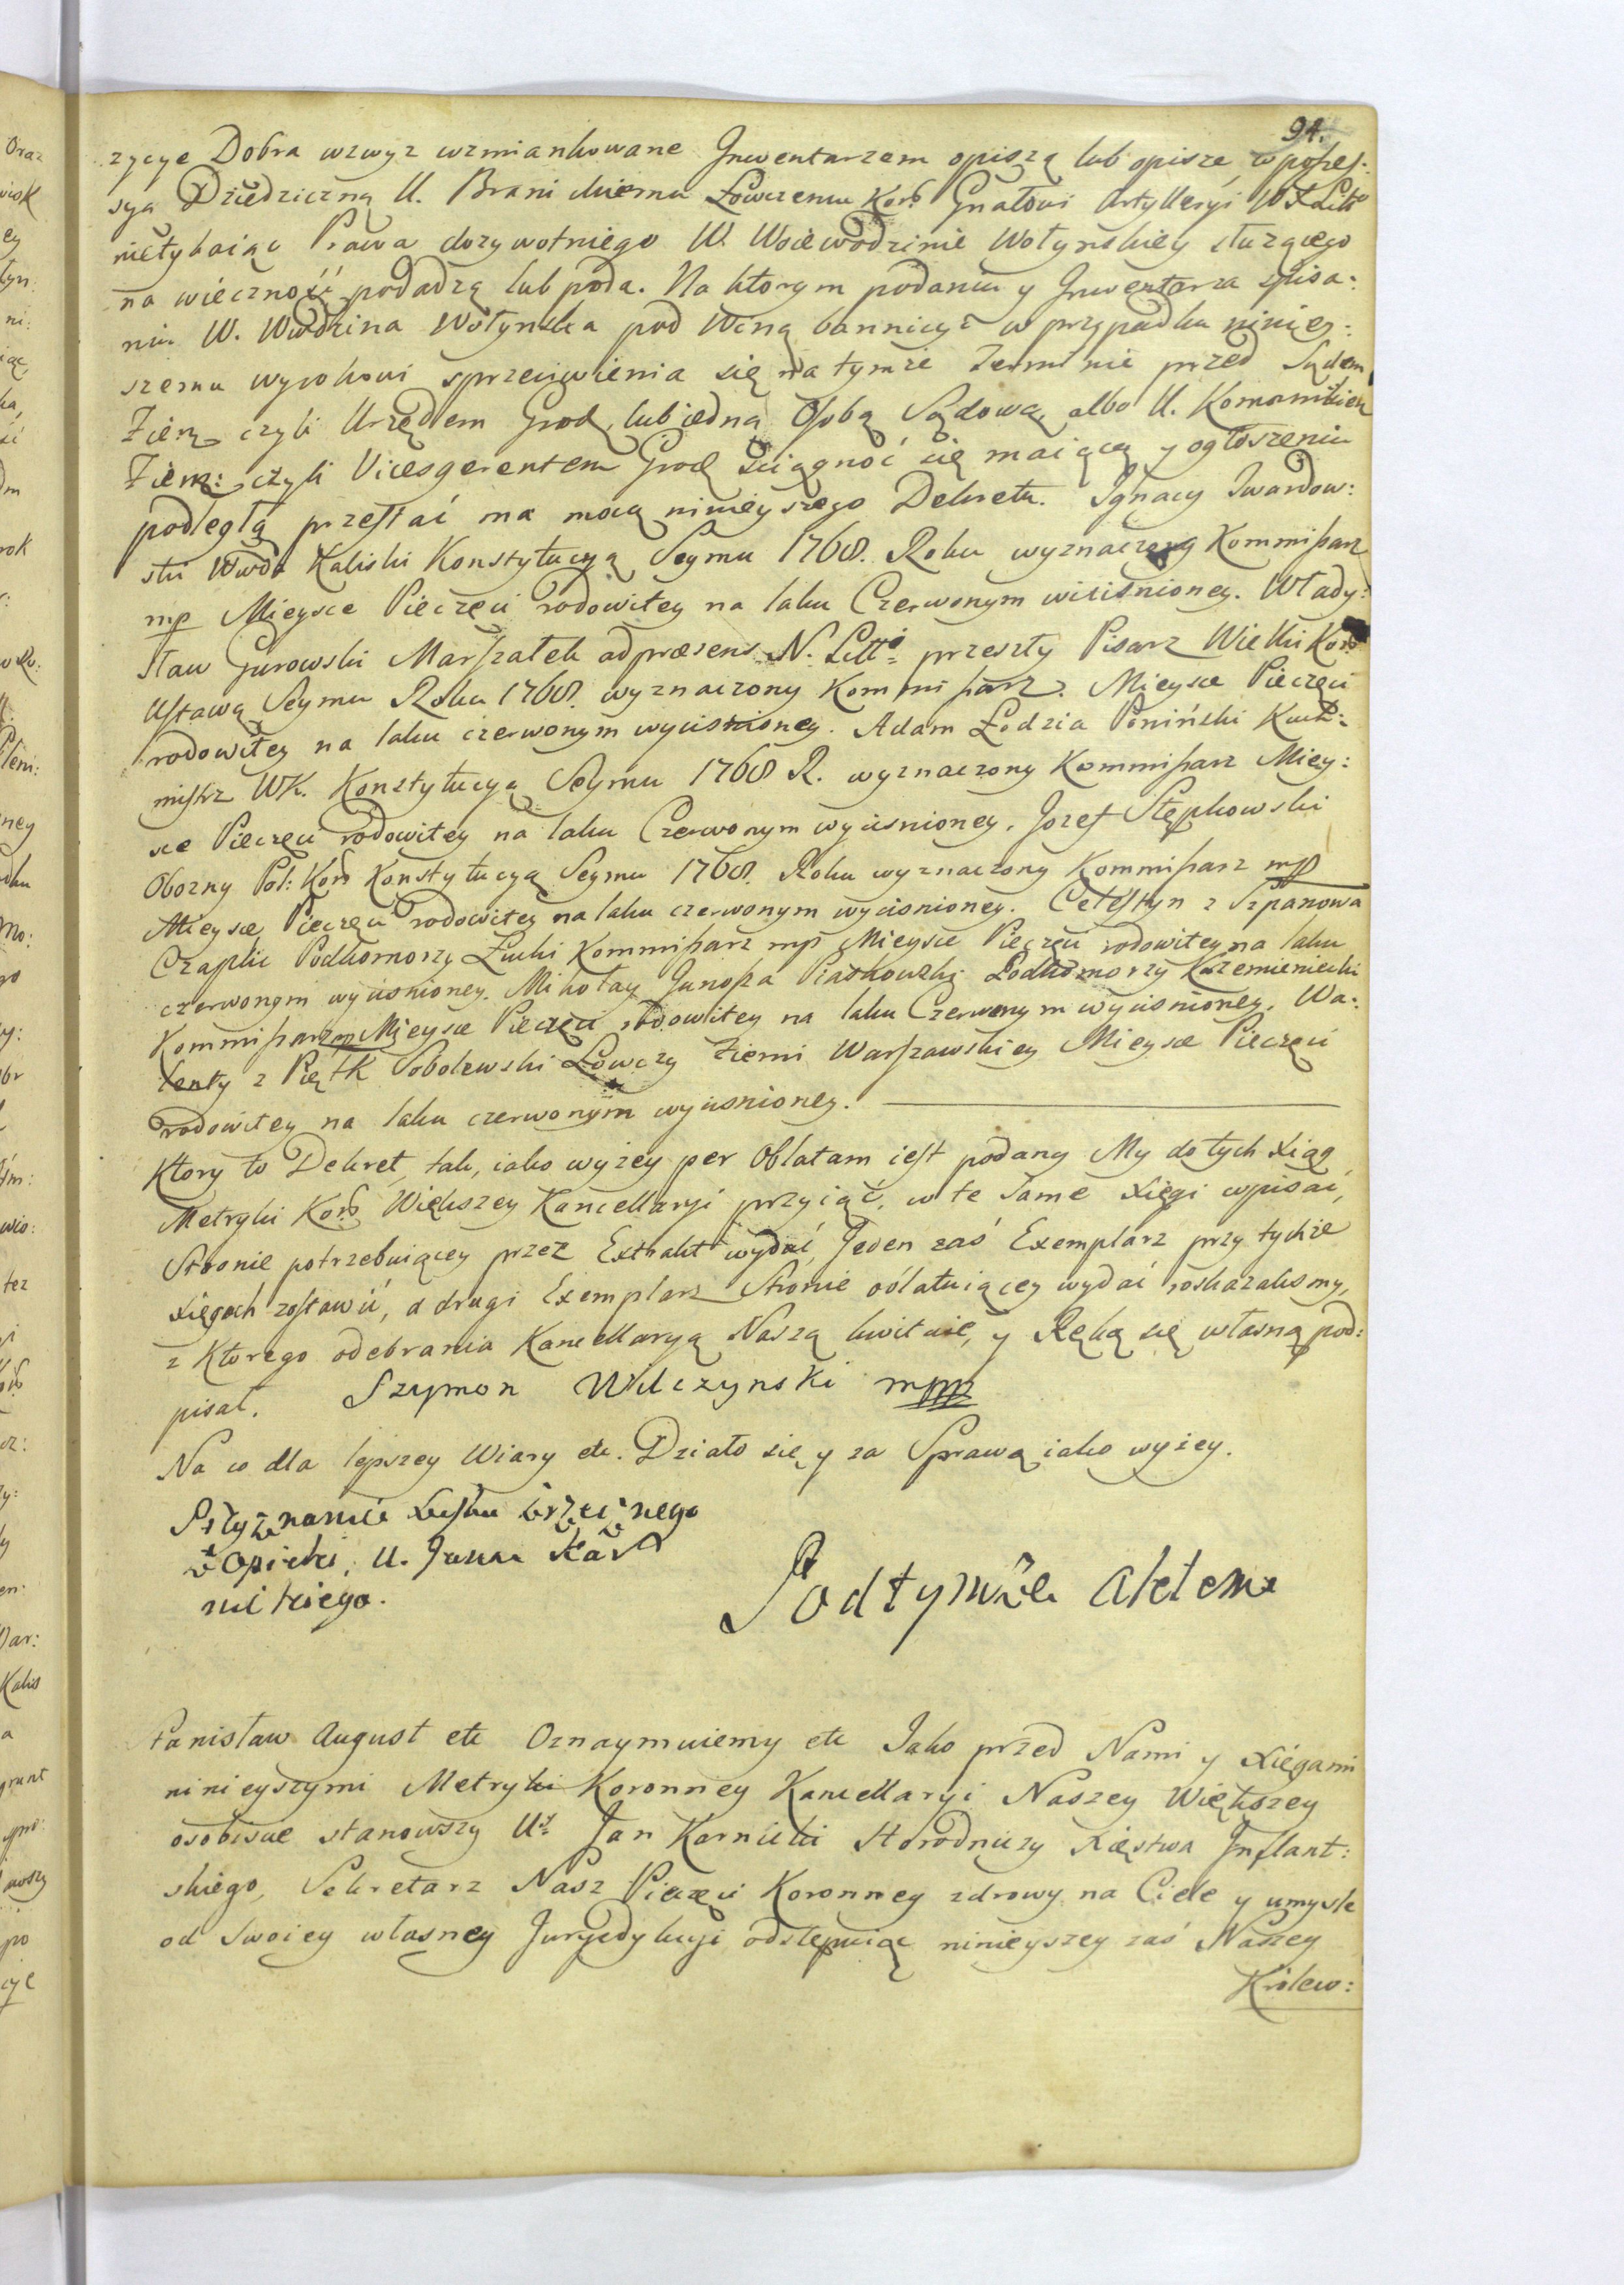 94.
zycye Dobra wzwyz wzmiankowane Jnwentarzem opiszą lub opisze, w posses:
syą Dziedziczną U. Branickiemu Łowczemu Kor: Gnałowi Artylleryi WXLitt
nietykaiąc Prawa dozywotniego W. Woiewodzinie Wołynskiey służącego
na wieczność podadzą lub poda. Na ktorym podaniu y Jnwentarza spisa:
niu W. Wwdzina Wołynska pod Winą bannicyi w przypadku niniey:
szemu wyrokowi sprzeciwienia się na tymże Terminie przed Sądem
Ziem: czyli Urzędem Grod, lub iedną Osobą Sądową, albo U. Komornikiem
Ziem: czyli Vicesgerentem Grod ściągnoć się maiącą y ogłoszeniu
podległą przestać ma mocą ninieyszego Dekretu. Jgnacy Twardow:
ski Wwda Kaliski Konstytucyą Seymu 1768. Roku wyznaczony Kommissarz
mp Mieysce Pieczęci rodowitey na laku Czerwonym wiciśnioney. Włady:
sław Gurowski Marszałek ad præsens N. Litt: przeszły Pisarz Wielki Kor:
Ustawą Seymu Roku 1768. wyznaczony Kommissarz. Mieysce Pieczęci
rodowitey na laku czerwonym wycisnioney. Adam Łodzia Poniński Kuch:
mistrz WK. Konstytucyą Seymu 1768 R. wyznaczony Kommissarz Miey:
sce Pieczęci rodowitey na laku Czerwonym wycisnioney. Jozef Stępkowski
Obozny Pol: Kor: Konstytucyą Seymu 1768. Roku wyznaczony Kommissarz mp
Mieysce Pieczęci rodowitey na laku czerwonym wycisnioney. Celestyn z Szpanowa
Czaplic Podkomorzy Łucki Kommissarz mp Mieysce Pieczęci rodowitey na laku
czerwonym wycisnioney. Mikołay Junosza Piaskowski Podkomorzy Krzemieniecki
Kommissarz mp Mieysce Pieczęci rodowitey na laku Czerwonym wycisnioney. Wa:
lenty z Piętk Sobolewski Łowczy Ziemi Warszawskiey Mieysce Pieczęci
rodowitey na laku czerwonym wycisnioney.
Ktory to Dekret, tak, iako wyżey per Oblatam iest podany My do tych Xiąg
Metryki Kor: Większey Kancellaryi przyiąć, w te same Xięgi wpisać,
Stronie potrzebuiącey przez Extrakt wydać, Jeden zaś Exemplarz przy tychże
Xięgach zostawić, a drugi Exemplarz Stronie oblatuiącey wydać roskazalismy,
z Ktorego odebrania Kancellaryą Naszą kwituie, y Ręką się własną pod:
pisał. Szymon Wilczynski mpp
Na co dla lepszey Wiary etc. Działo się y za Sprawą iako wyżey.
Przyznanie Xustu Wrzecznego
z Opieki, U. Janu Kar
nickiego.
Pod tymże Aktem
Stanisław August etc Oznaymuiemy etc Jako przed Nami y Xięgami
ninieyszymi Metryki Koronney Kancellaryi Naszey Większey
osobiscie stanowszy Ur: Jan Karnicki Horodniczy Xięstwa Jnflant:
skiego, Sekretarz Nasz Pieczęci Koronney zdrowy na Ciele y umysle
od Swoiey własney Jurysdykcyi odstępuiąc ninieyszey zaś Naszey
Krolew: